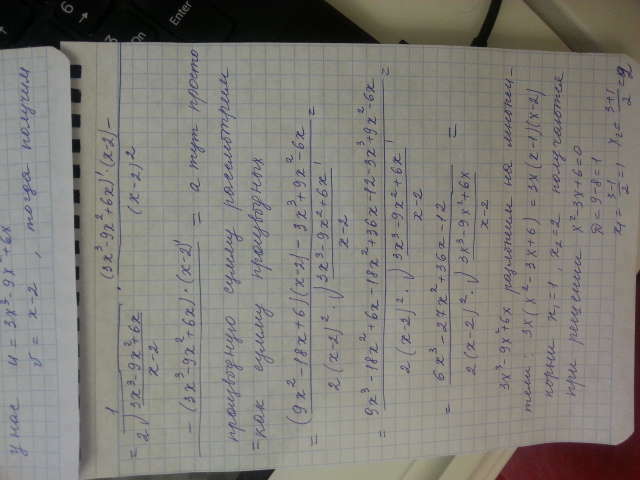 у нас u = 3x³-9x²+6x
v = x-2, тогда получим
= 1/(2√((3x³-9x²+6x)/(x-2))) · ((3x³-9x²+6x)'·(x-2) -
- (3x³-9x²+6x)·(x-2)')/(x-2)² = а тут просто
производную сумму рассмотрим
= как сумму производных
= ((9x²-18x+6)(x-2) - 3x³+9x²-6x)/(2(x-2)²·√((3x³-9x²+6x)/(x-2))) =
= (9x³-18x²+6x-18x²+36x-12-3x³+9x²-6x)/(2(x-2)²·√((3x³-9x²+6x)/(x-2))) =
= (6x³-27x²+36x-12)/(2(x-2)²·√((3x³-9x²+6x)/(x-2))) =
3x³-9x²+6x разложим на множи-
тели: 3x(x²-3x+6) = 3x(x-1)(x-2)
корни x₁=1, x₂=2 получаются
при решении x²-3x+6=0
D=9-8=1
x₁=(3-1)/2=1 x₂=(3+1)/2=2
6
Enter